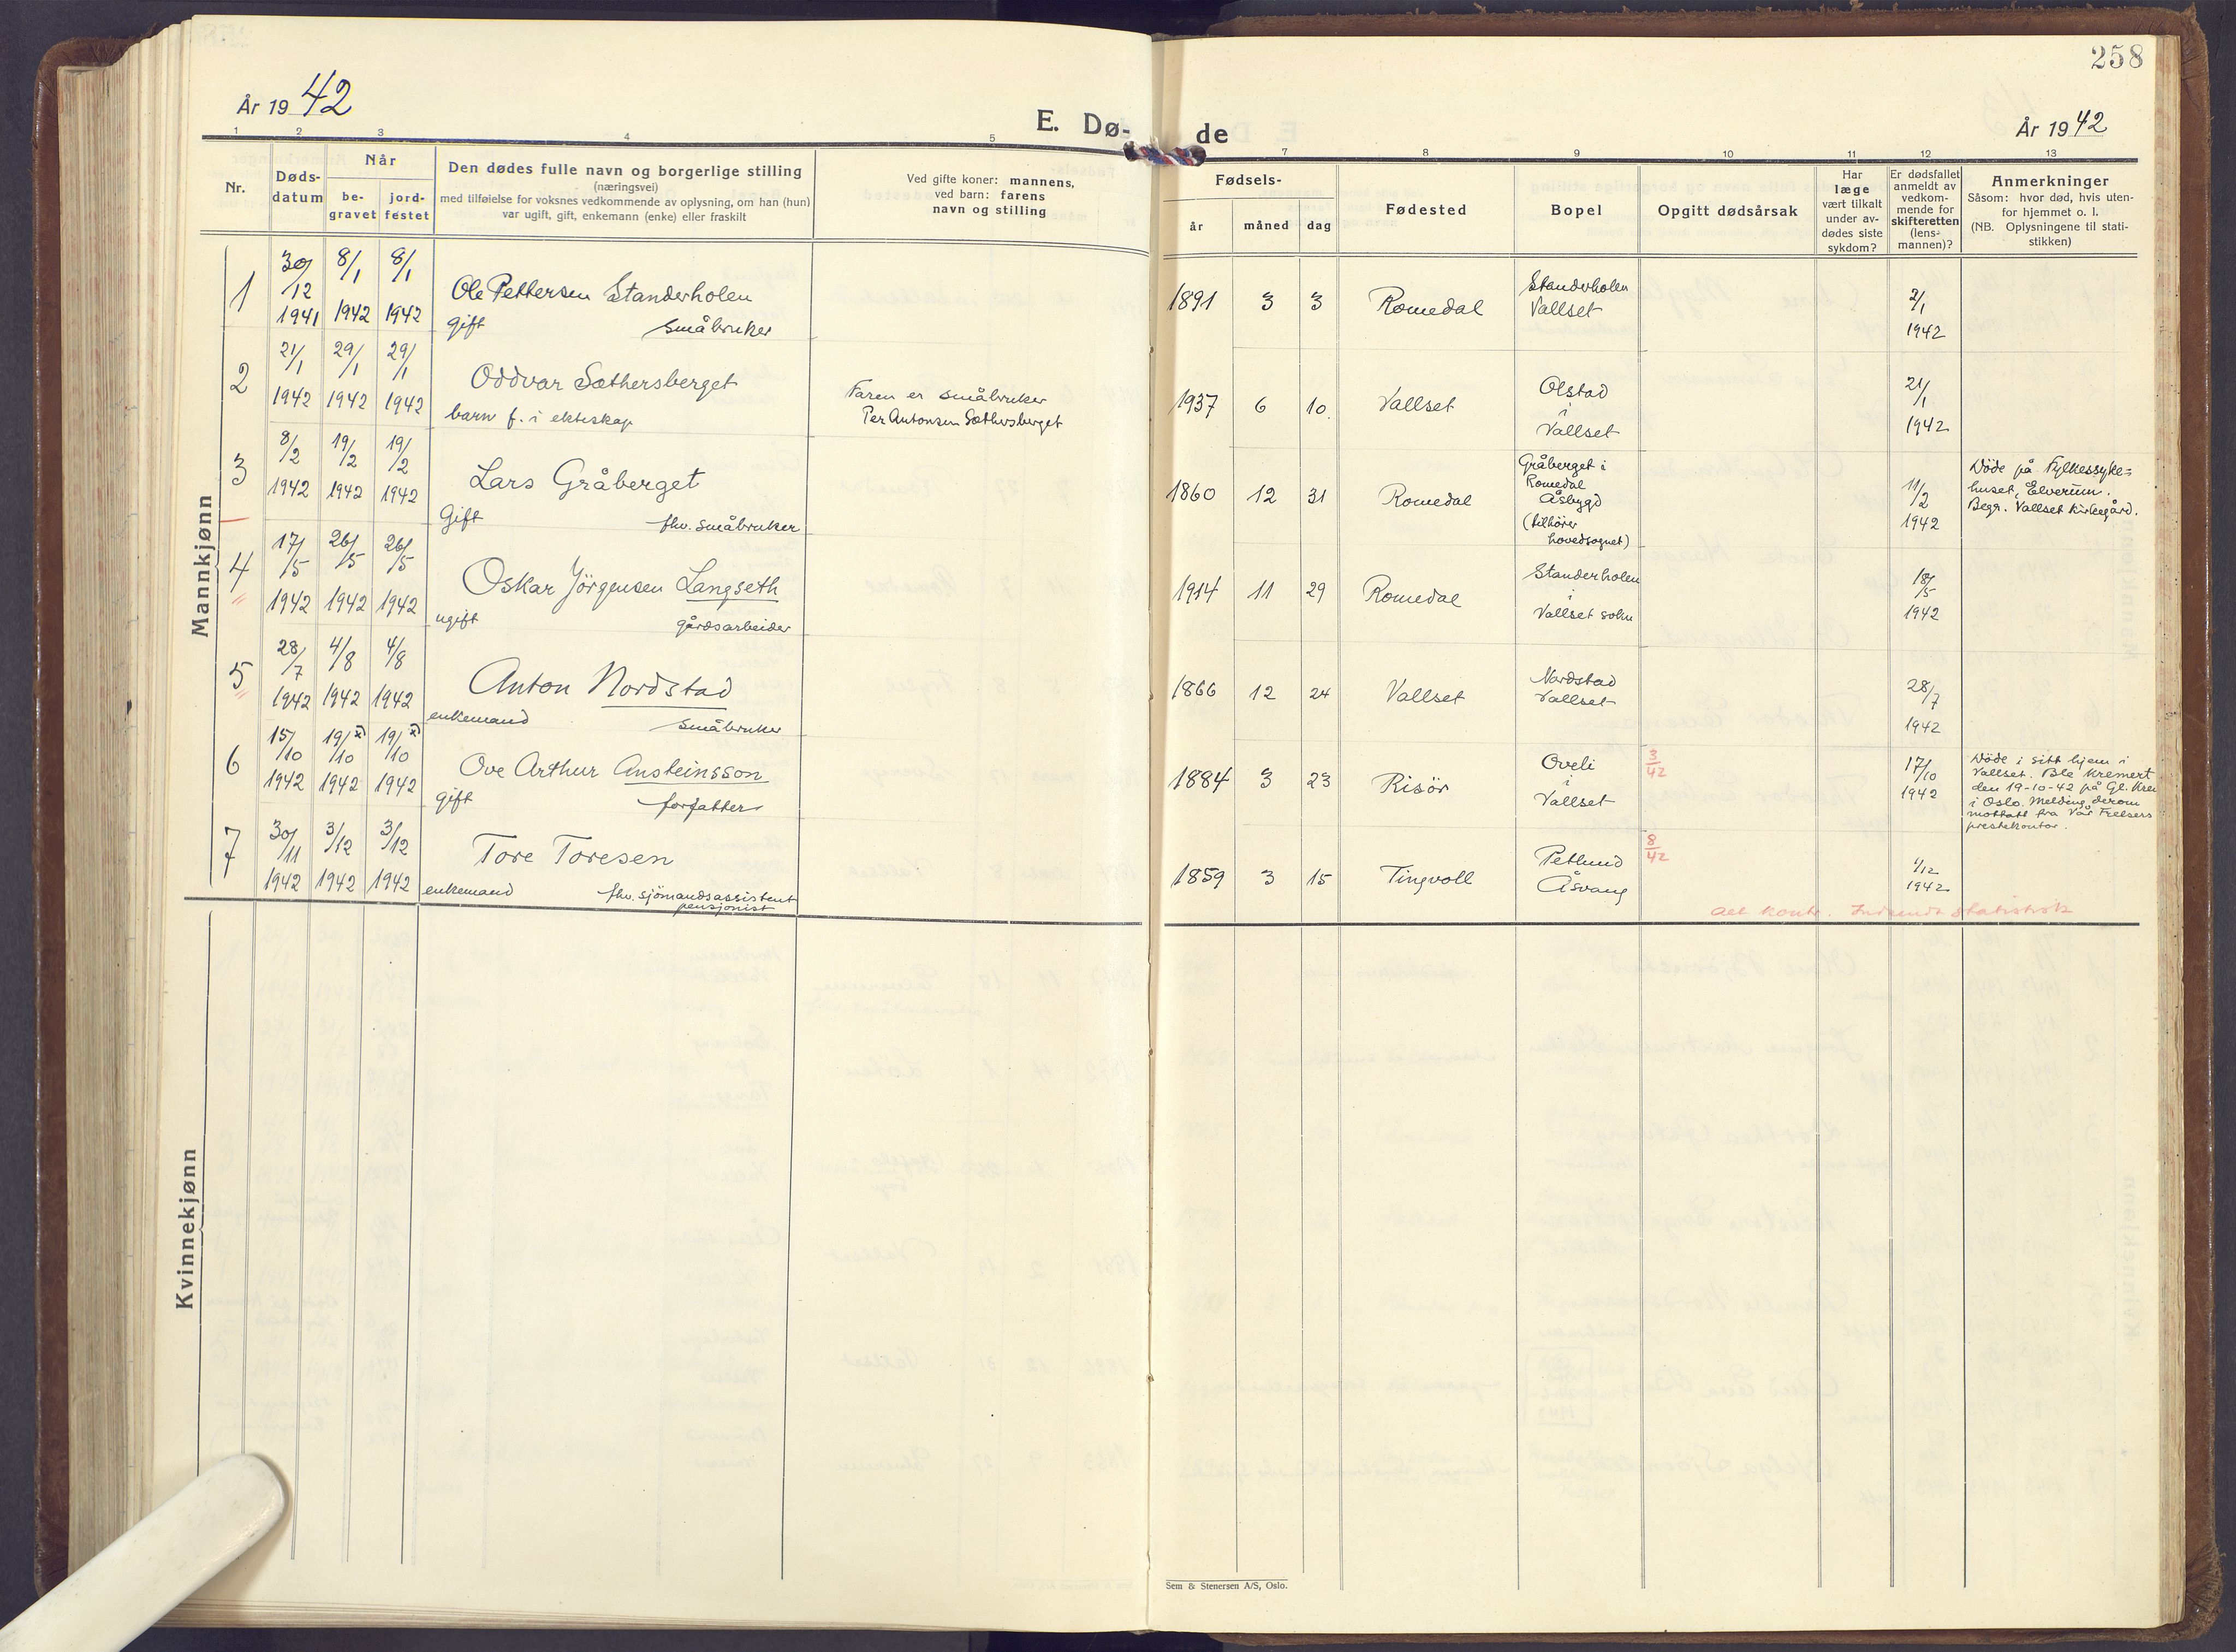 258
År 1942
E. Dø-
de
År 1942
1 2 3 4 5
7 8 9 10 11 12 13
Nr.
Døds-
datum
Når
be-
gravet
jord-
festet
Den dødes fulle navn og borgerlige stilling
(næringsvei)
med tilføielse for voksnes vedkommende av oplysning, om han (hun)
var ugift, gift, enkemann (enke) eller fraskilt
Ved gifte koner: mannens,
ved barn: farens
navn og stilling
Fødsels-
år måned dag
Fødested
Bopel
Opgitt dødsårsak
Har
læge
vært tilkalt
under av-
dødes siste
sykdom?
Er dødsfallet
anmeldt av
vedkom-
mende for
skifteretten
(lens-
mannen)?
Anmerkninger
Såsom: hvor død, hvis uten-
for hjemmet o. l.
(NB. Oplysningene til stati-
stikken)
Mannkjønn
1
30/12 8/1 8/1
1941 1942 1942
Ole Pettersen Standerholen
gift småbruker
1891 3 3 Romedal
Standerholen
Vallset
2/1
1942
2
21/1 29/1 29/1
1942 1942 1942
Oddvar Sæthersberget
barn f. i ekteskap
Faren er småbruker
Per Antonsen Sæthersberget
1937 6 10. Vallset
Olstad
i
Vallset
21/1
1942
3
8/2 19/2 19/2
1942 1942 1942
Lars Gråberget
Gift fhv. småbruker
1860 12 31 Romedal
Gråberget i
Romedal
Åsbygd
(tilhører
hovedsognet)
11/2
1942
Døde på Fylkessyke=
huset, Elverum.
Begr. Vallset kirkegård.
4
17/5 26/5 26/5
1942 1942 1942
Oskar Jörgensen Langseth
ugift gårdsarbeider
1914 11 29 Romedal
Standerholen
i
Vallset sokn
18/5
1942
5
28/7 4/8 4/8
1942 1942 1942
Anton Nordstad
enkemand småbruker
1866 12 24 Vallset
Nordstad
Vallset
28/7
1942
6
15/10 19/10 x) 19/10 x)
1942 1942 1942
Ove Arthur Ansteinsson
gift forfatter
1884 3 23 Risör
Oveli
i
Vallset
3/42
17/10
1942
Døde i sitt hjem i
Vallset. Ble kremert
den 19-10-42 på Gl. Kre
i Oslo. Melding derom
mottatt fra Vår Frelsers
prestekontor.
7
30/11 3/12 3/12
1942 1942 1942
Tore Toresen
enkemand fhv. sjömandsassistent
pensjonist
1859 3 15 Tingvoll
Petlund
Åsvang
8/42
1/12
1942
Alt kontr. Indsendt statistisk
Kvinnekjønn
Sem & Stenersen A/S, Oslo.